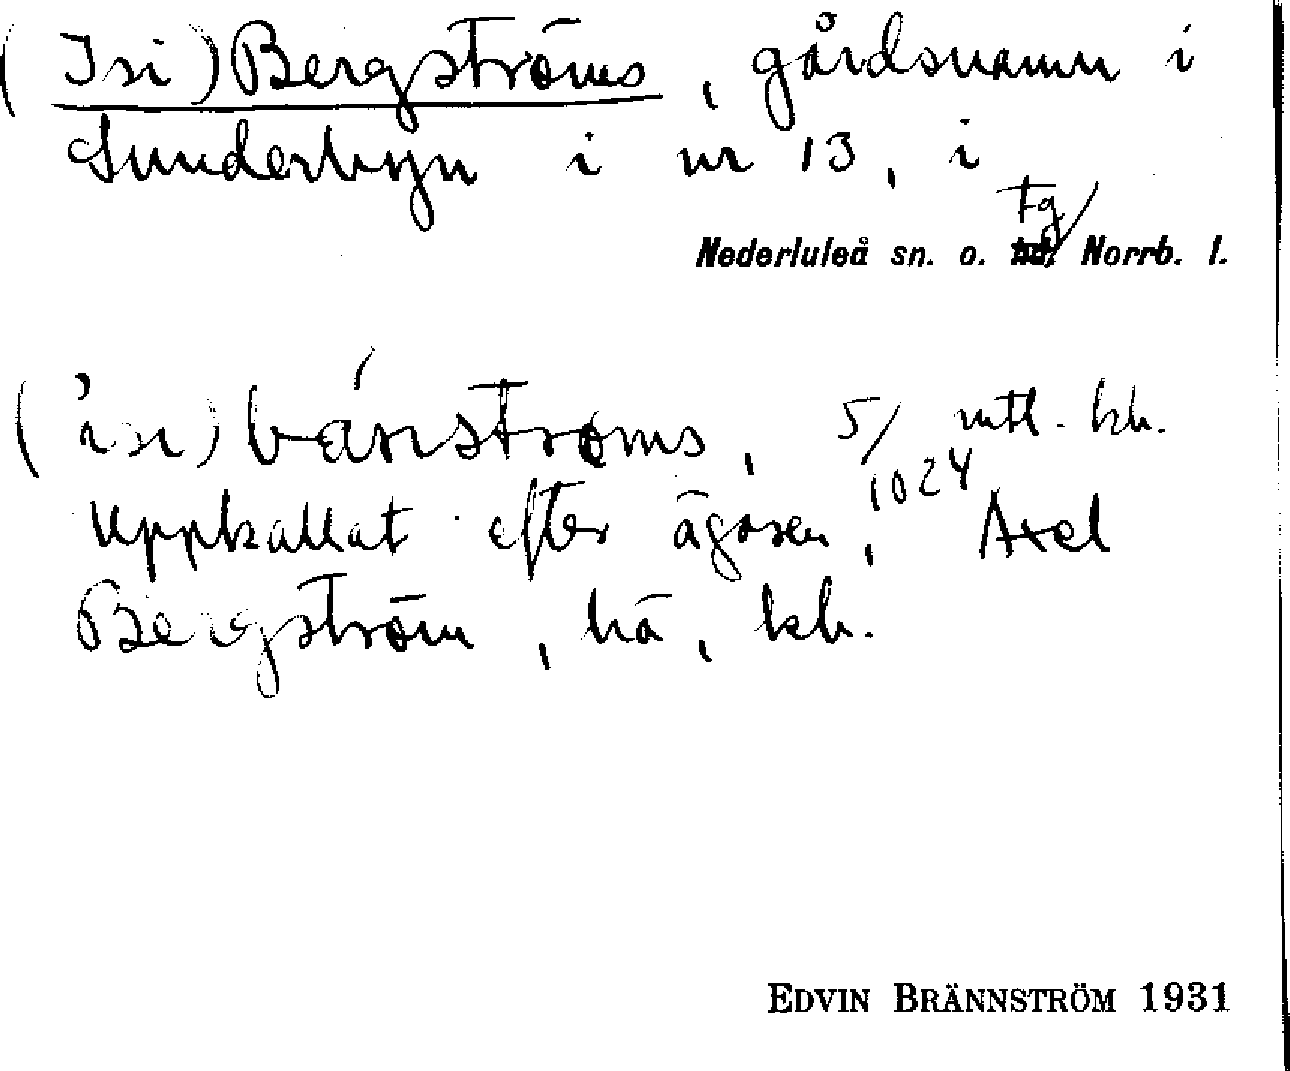 (Isi) Bergströms, gårdsnamn i
Sunderbyn i nr 13, i
Tg
Nederluleå sn. o. Norrb. l.
(isi) 5/1024 mtl. kh.
Uppkallat efter ägaren, Axel
Bergström, hä, kh.
EDVIN BRÄNNSTRÖM 1931